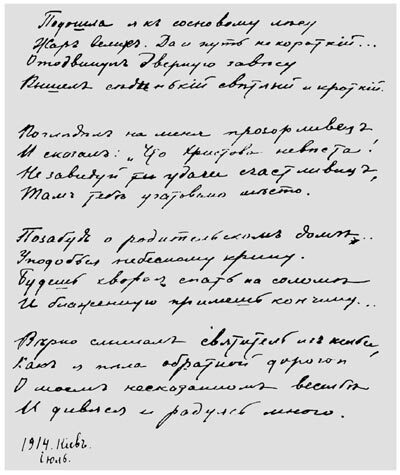 Подошла я къ сосновому лѣсу
Жаръ великъ. Да и путь не короткій...
Отодвинулъ дверную завѣсу
Вышелъ сѣденькій свѣтлый и кроткій.
Поглядѣлъ на меня прозорливецъ
И сказалъ: „Что Христова невѣста!
Не завидуй ты удачѣ счастливицъ,
Тамъ тебѣ уготовано мѣсто.
Позабудь о родительскомъ домѣ...
Уподобься небесному крину.
Будешь хворая спать на соломѣ
И блаженную примешь кончину...
Вѣрно слышалъ святитель изъ кельи,
Какъ я пѣла обратной дорогой
О моемъ несказанномъ весельѣ
И дивяся и радуясь много.
1914. Кіевъ.
Іюль.